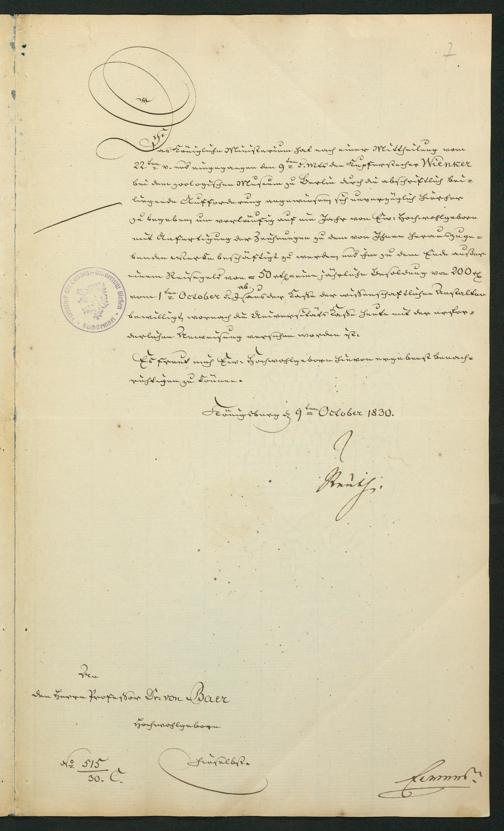 7
Das Königliche Ministerium hat nach einer Mittheilung vom
22ten v. und eingegangen den 9ten d. Mts den Kupferstecher Wienker
bei dem zoologischen Museum zu Berlin durch die abschriftlich bei-
liegende Aufforderung angewiesen sich unverzüglich hierher
zu begeben um vorläufig auf ein Jahr von Ew: Hochwohlgeboren
mit Anfertigung der Zeichnungen zu dem von Ihnen herauszuge-
benden Werke beschäftigt zu werden und ihm zu dem Ende außer
einem Reisegeld von 50 rtl eine jährliche Besoldung von 200 rtl
vom 1ten October d. J. ab aus der Kasse der wissenschaftlichen Anstalten
bewilligt, wornach die Universitäts Kasse heute mit der erfor-
derlichen Anweisung versehen worden ist.
Es freut mich Ew: Hochwohlgeboren hievon ergebenst benach-
richtigen zu können.
Königsberg d 9ten October 1830.
An
den Herrn Professor Dr: von Baer
Hochwohlgeboren
hieselbst.
No 515
30. C.